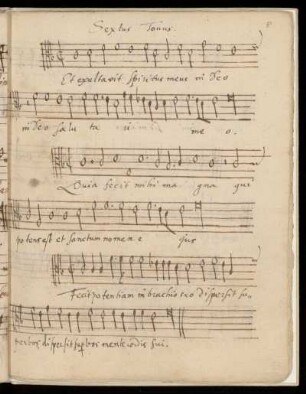 Sextus Tonus.
Et exultavit spiritus meus in Deo
in Deo salu ta ri me o.
Quia fecit mihi ma gna qui
potens est et sanctum nomen e jus
Fecit potentiam in brachio suo dispersit su,
perbos dispersit supbos mente cordis sui.